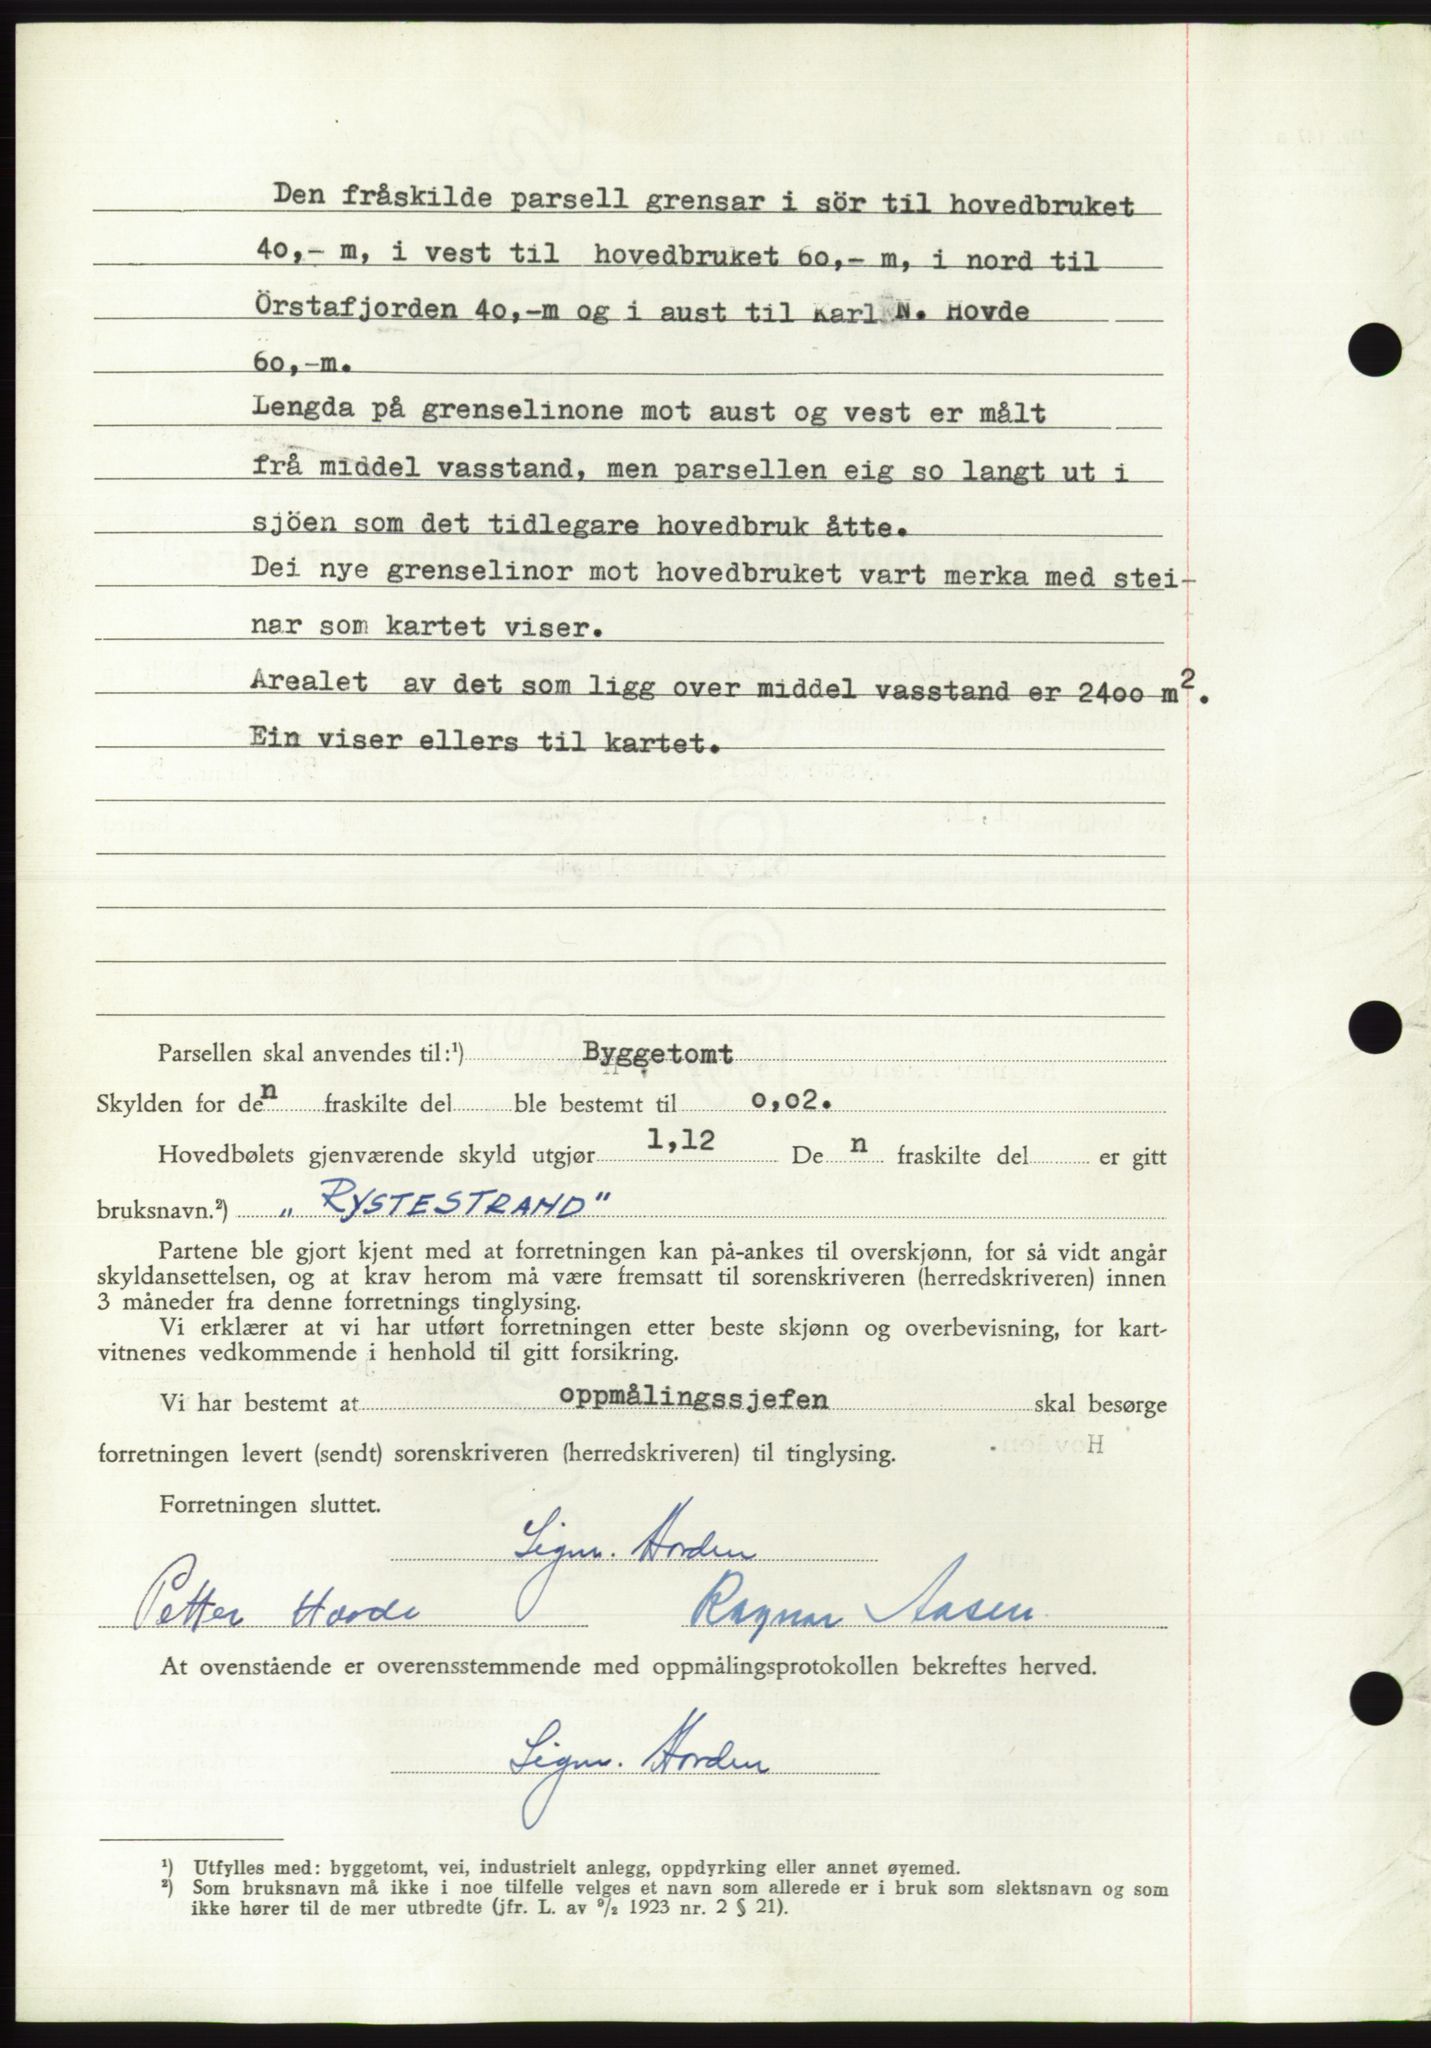 Den fråskilde parsell grensar i sör til hovedbruket
40,- m, i vest til hovedbruket 60,- m, i nord til
Örstafjorden 40,-m og i aust til Karl N. Hovde
60,-m.
Lengda på grenselinone mot aust og vest er målt
frå middel vasstand, men parsellen eig so langt ut i
sjöen som det tidlegare hovedbruk åtte.
Dei nye grenselinor mot hovedbruket vart merka med stei-
nar som kartet viser.
Arealet av det som ligg over middel vasstand er 2400 m².
Ein viser ellers til kartet.
Parsellen skal anvendes til:¹) Byggetomt
Skylden for den fraskilte del ble bestemt til 0,02.
Hovedbølets gjenværende skyld utgjør 1,12 De n fraskilte del er gitt
bruksnavn.²) „ RYSTESTRAND"
Partene ble gjort kjent med at forretningen kan på-ankes til overskjønn, for så vidt angår
skyldansettelsen, og at krav herom må være fremsatt til sorenskriveren (herredskriveren) innen
3 måneder fra denne forretnings tinglysing.
Vi erklærer at vi har utført forretningen etter beste skjønn og overbevisning, for kart-
vitnenes vedkommende i henhold til gitt forsikring.
Vi har bestemt at oppmålingssjefen skal besørge
forretningen levert (sendt) sorenskriveren (herredskriveren) til tinglysing.
Forretningen sluttet.
Sigm. Hovden
Petter Hovde Ragnar Aasen
At ovenstående er overensstemmende med oppmålingsprotokollen bekreftes herved.
Sigm. Hovden
¹) Utfylles med: byggetomt, vei, industrielt anlegg, oppdyrking eller annet øyemed.
²) Som bruksnavn må ikke i noe tilfelle velges et navn som allerede er i bruk som slektsnavn og som
ikke hører til de mer utbredte (jfr. L. av ⁹/₂ 1923 nr. 2 § 21).